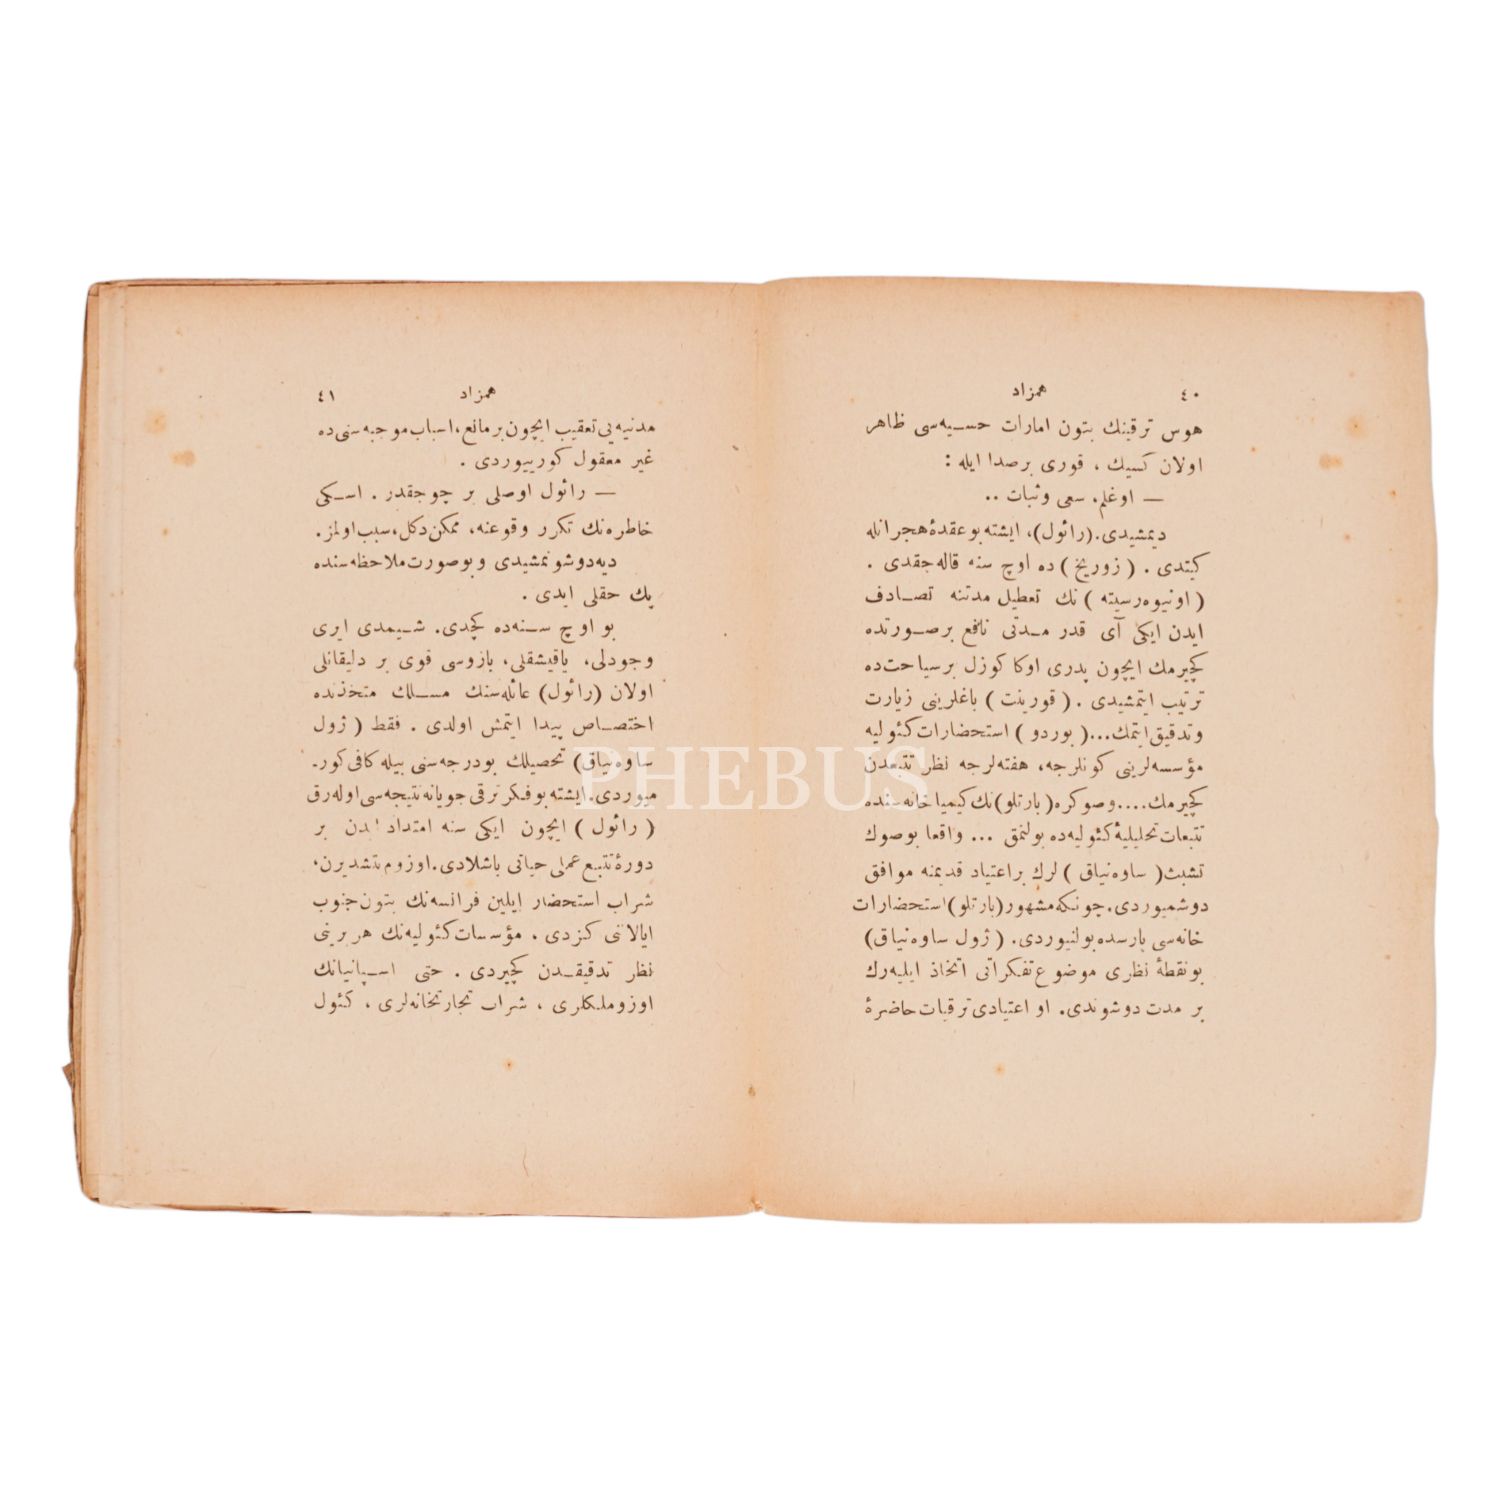 ٤٠ همزاد
هوس ترقینك بتون امارات حسیه‌سی ظاهر
اولان كسیك ، قوری برصدا ایله :
— اوغلم، سعی وثبات ..
دیمشیدی. (رائول)، ایشته بوعقدهٔ هجرانله
كیتدی . ( زوریخ ) ده اوچ سنه قاله‌جقدی .
( اونیوه‌رسیته ) نك تعطیل مدتنه تصادف
ایدن ایكی آی قدر مدتی نافع برصورتده
كچیرمك ایچون پدری اوكا كوزل برسیاحت‌ده
ترتیب ایتمشیدی . ( قورینت ) باغلرینی زیارت
وتدقیق ایتمك... ( بوردو ) استحضارات كئولیه
مؤسسه‌لرینی كونلرجه، هفته‌لرجه نظر تتبعدن
كچیرمك.... وصوكره ( بارتلو ) نك كیمیاخانه‌سنده
تتبعات تحلیلیهٔ كئولیه‌ده بولنمق ... واقعا بوصوك
تشبث ( ساوه‌نیاق ) لرك براعتیاد قدیمنه موافق
دوشمیوردی. چونكه مشهور (بارتلو) استحضارات
خانه‌سی پارسده بولنیوردی. ( ژول ساوه‌نیاق)
بونقطهٔ نظری موضوع تفكراتی اتخاذ ایلیه‌رك
بر مدت دوشوندی. او اعتیادی ترقیات حاضرهٔ
همزاد ٤١
مدنیه‌یی تعقیب ایچون برمانع، اسباب موجبه‌سنی ده
غیر معقول كورییوردی .
— رائول اوصلی بر چوجقدر . اسكی
خاطره‌نك تكرر وقوعنه، ممكن دكل، سبب اولمز.
دیه‌دوشونمشیدی وبوصورت ملاحظه‌سنده
پك حقلی ایدی .
بو اوچ سنه‌ده كچدی. شیمدی ایری
وجودلی، یاقیشقلی، بازوسی قوی بر دلیقانلی
اولان (رائول) عائله‌سنك مسلك متخذنده
اختصاص پیدا ایتمش اولدی . فقط ( ژول
ساوه‌نیاق) تحصیلك بودرجه‌سنی بیله كافی كور-
میوردی. ایشته بوفكر ترقی جویانه نتیجه‌سی اوله‌رق
( رائول ) ایچون ایكی سنه امتداد ایدن بر
دورهٔ تتبع عملی حیاتی باشلادی. اوزوم یتشدیرن،
شراب استحضار ایلین فرانسه‌نك بتون جنوب
ایالاتنی كزدی . مؤسسات كئولیه‌نك هربرینی
نظر تدقیقدن كچیردی . حتی اسپانیانك
اوزوملكلری ، شراب تجارتخانه‌لری ، كئول
PHEBUS